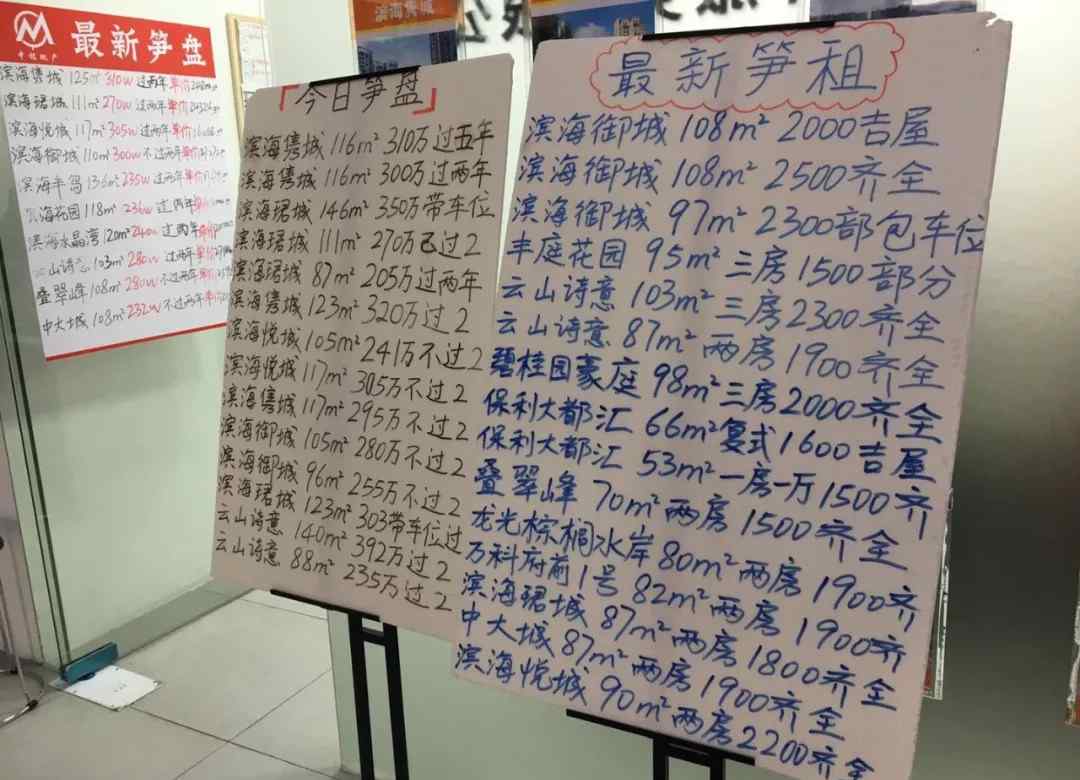 最新笋盘
滨海隽城 125m² 310w 过两年 单价
滨海珺城 111m² 270w 过两年 单价
滨海悦城 117m² 305w 过两年 单价
滨海御城 110m² 300w 不过两年 单价
滨海半岛 136m² 235w 过两年 单价
海花园 118m² 236w 过两年
滨海水晶湾 120m² 240w 过两年 单价
云山诗意 103m² 280w 过两年 单价
叠翠峰 108m² 280w 不过两年 单价
中大城 108m² 232w 不过两年 单价
「今日笋盘」
滨海隽城 116m² 310万过五年
滨海隽城 116m² 300万过两年
滨海珺城 146m² 350万带车位
滨海珺城 111m² 270万已过2
滨海珺城 87m² 205万过两年
滨海隽城 123m² 320万过2
滨海悦城 105m² 241万不过2
滨海悦城 117m² 305万不过2
滨海隽城 117m² 295万不过2
滨海御城 105m² 280万不过2
滨海御城 96m² 255万不过2
滨海珺城 123m² 303带车位过
云山诗意 140m² 392万过2
云山诗意 88m² 235万过2
滨海
最新笋租
滨海御城 108m² 2000吉屋
滨海御城 108m² 2500齐全
滨海御城 97m² 2300部包车位
丰庭花园 95m² 三房1500部分
云山诗意 103m² 三房2300齐全
云山诗意 87m² 两房1900齐全
碧桂园豪庭 98m² 三房2000齐全
保利大都汇 66m² 复式1600吉屋
保利大都汇 53m² 一房一万1500齐
叠翠峰 70m² 两房1500齐全
龙光棕榈水岸 80m² 两房1900齐
万科府前1号 82m² 两房1900齐
滨海珺城 87m² 两房1800齐全
中大城 87m² 两房1900齐全
滨海悦城 90m² 两房2200齐全